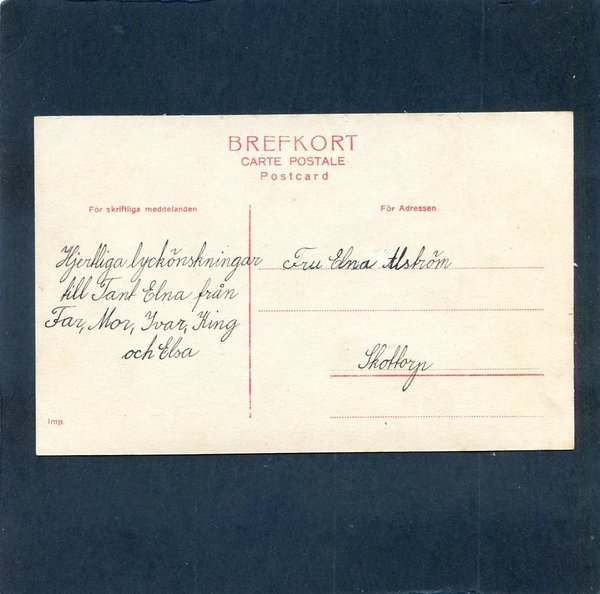 BREFKORT
CARTE POSTALE
Postcard
För skriftliga meddelanden
Hjertliga lyckönskningar
till Tant Elna från
Far, Mor, Ivar, King
och Elsa
Imp.
För Adressen
Fru Elna Alström
Skottorp